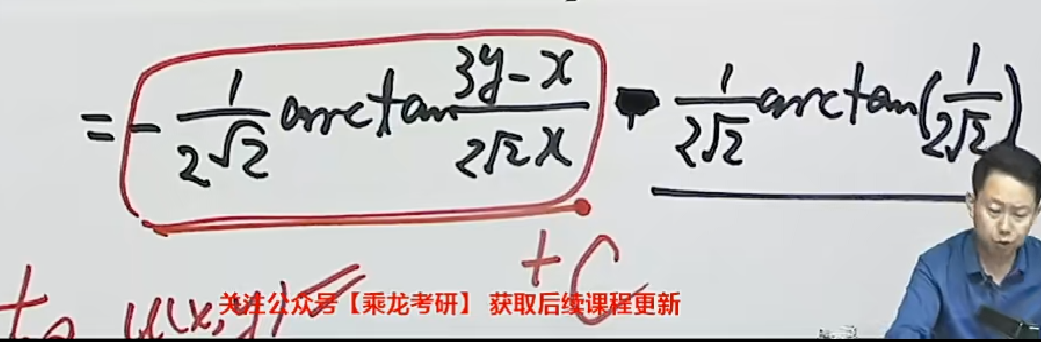 = - \frac{1}{2\sqrt{2}} arctan \frac{3y-x}{2\sqrt{2}x} - \frac{1}{2\sqrt{2}} arctan(\frac{1}{2\sqrt{2}})
+ C
u(x,y)
关注公众号【乘龙考研】 获取后续课程更新